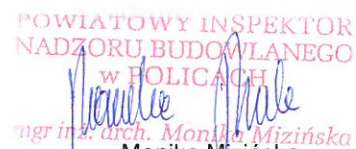 POWIATOWY INSPEKTOR
NADZORU BUDOWLANEGO
w POLICACH
mgr inż. arch. Monika Mizińska
Monika Mizińska